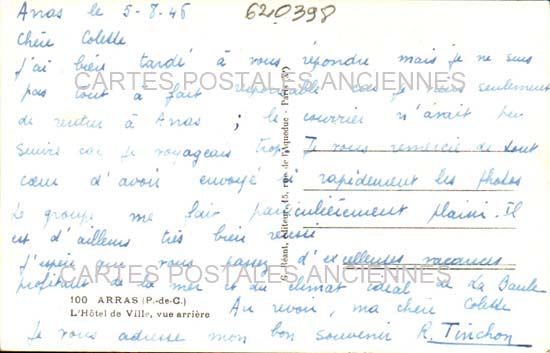 Arras le 5-8-46
620398
Chère Colette
J'ai bien tardé à vous répondre mais je ne suis
pas tout à fait responsable car je viens seulement
CARTES POSTALES ANCIENNES
de rentrer à Arras ; le courrier n'avait pu
suivre car je voyageais trop. Je vous remercie de tout
cœur d'avoir envoyé si rapidement les photos
Le groupe me fait particulièrement plaisir. Il
est d'ailleurs très bien réussi
J'espère que vous passez d'excellentes vacances
CARTES POSTALES ANCIENNES
profitant de la mer et du climat idéal de La Baule
100 ARRAS (P.-de-C.)
L'Hôtel de Ville, vue arrière
Au revoir, ma chère Colette
Je vous adresse mon bon souvenir R. Tinchon
G. Réant, éditeur, 45, rue de l'Aqueduc - Paris (Xe)